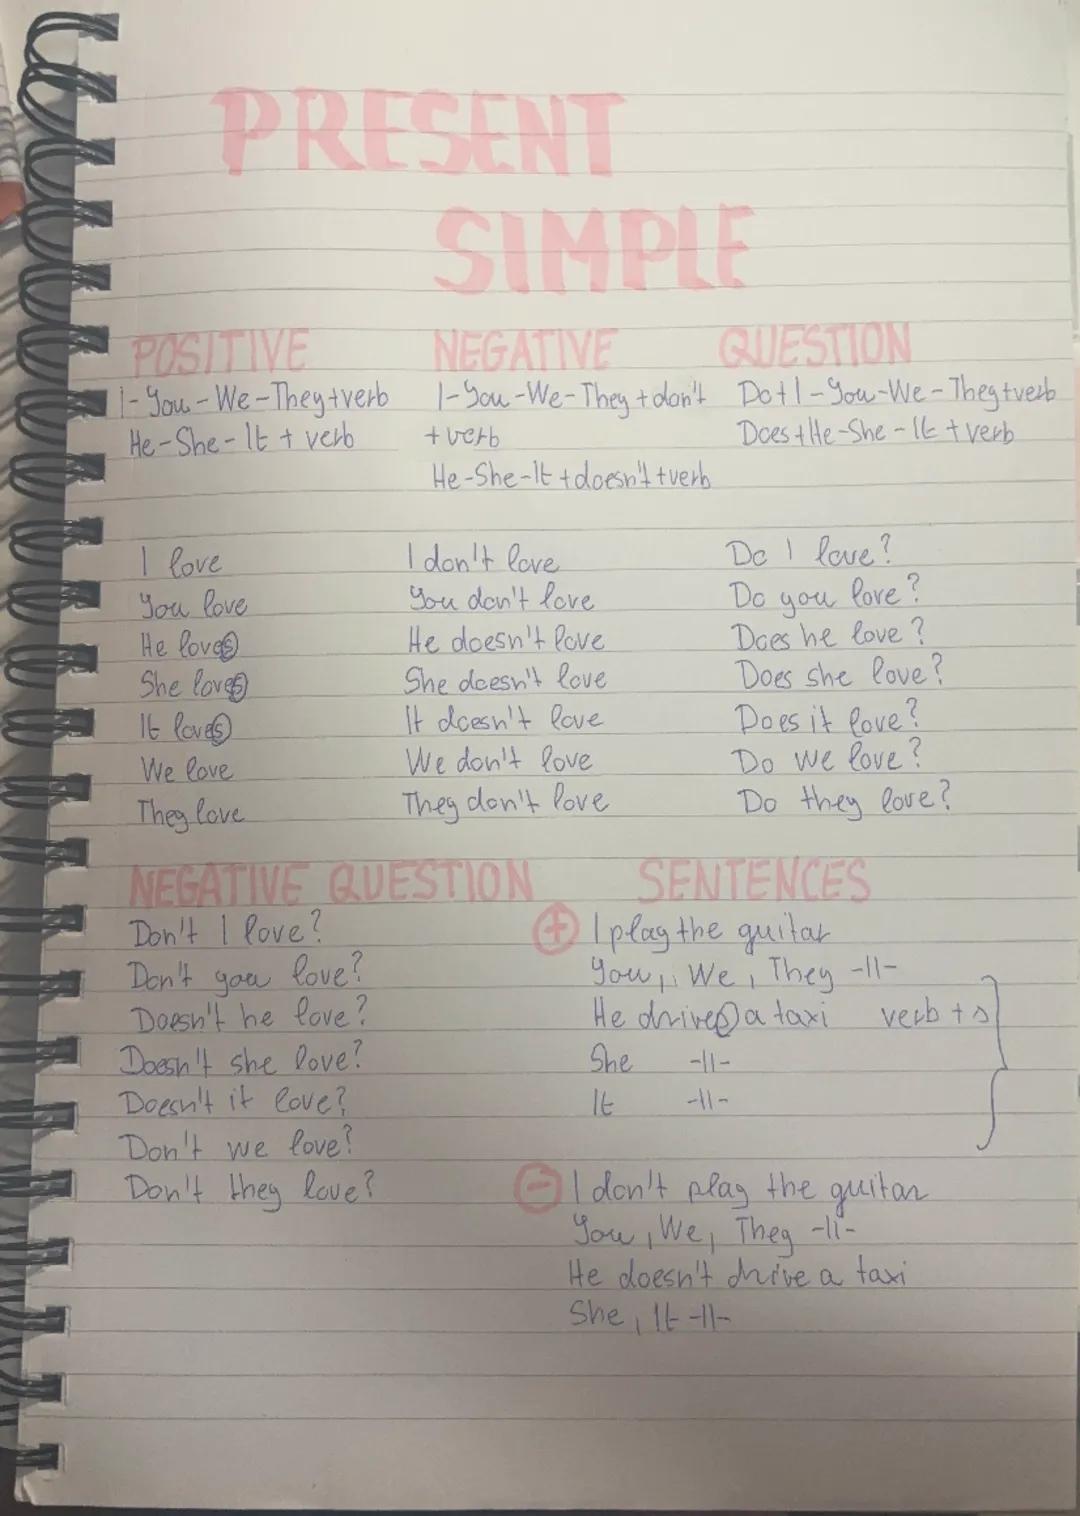 PRESENT
SIMPLE
POSITIVE
I-You-We-They+verb
He-She-It + verb
I love
You love
He loves
She loves
It loves
We love
They love
NEGATIVE
I-You-We-They + don't
+ verb
He-She-It + doesn't + verb
I don't love
You don't love
He doesn't love
She doesn't love
It doesn't love
We don't love
They don't love
QUESTION
Do + I-You-We-They + verb
Does + He-She-It + verb
Do I love?
Do you love?
Does he love?
Does she love?
Does it love?
Do we love?
Do they love?
NEGATIVE QUESTION
Don't I love?
Don't you love?
Doesn't he love?
Doesn't she love?
Doesn't it love?
Don't we love?
Don't they love?
SENTENCES
+ I play the guitar
You, We, They -||-
He drives a taxi verb + s
She -||-
It -||-
- I don't play the guitar
You, We, They -||-
He doesn't drive a taxi
She, It -||-